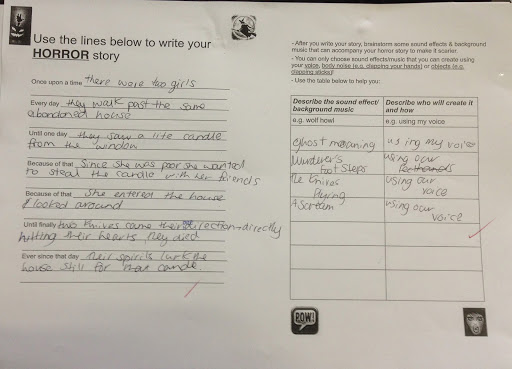 Use the lines below to write your
HORROR story
Once upon a time there were two girls
Every day they walk past the same
abandoned house
Until one day they saw a lite candle
from the window
Because of that Since she was poor she wanted
to steal the candle with her friends
Because of that She entered the house
& looked around
Until finally two knives came their direction directly
hitting their hearts, they died
Ever since that day their spirits lurk the
house still for that candle.
- After you write your story, brainstorm some sound effects & background
music that can accompany your horror story to make it scarier.
- You can only choose sound effects/music that you can create using
your voice, body noise (e.g. clapping your hands) or objects (e.g.
clapping sticks)!
- Use the table below to help you:
Describe the sound effect/ background music
Describe who will create it and how
e.g. wolf howl
e.g. using my voice
ghost moaning
using my voice
Murderer's foot steps
using our
The knives flying
using our voice
A Scream
using our voice
POW!